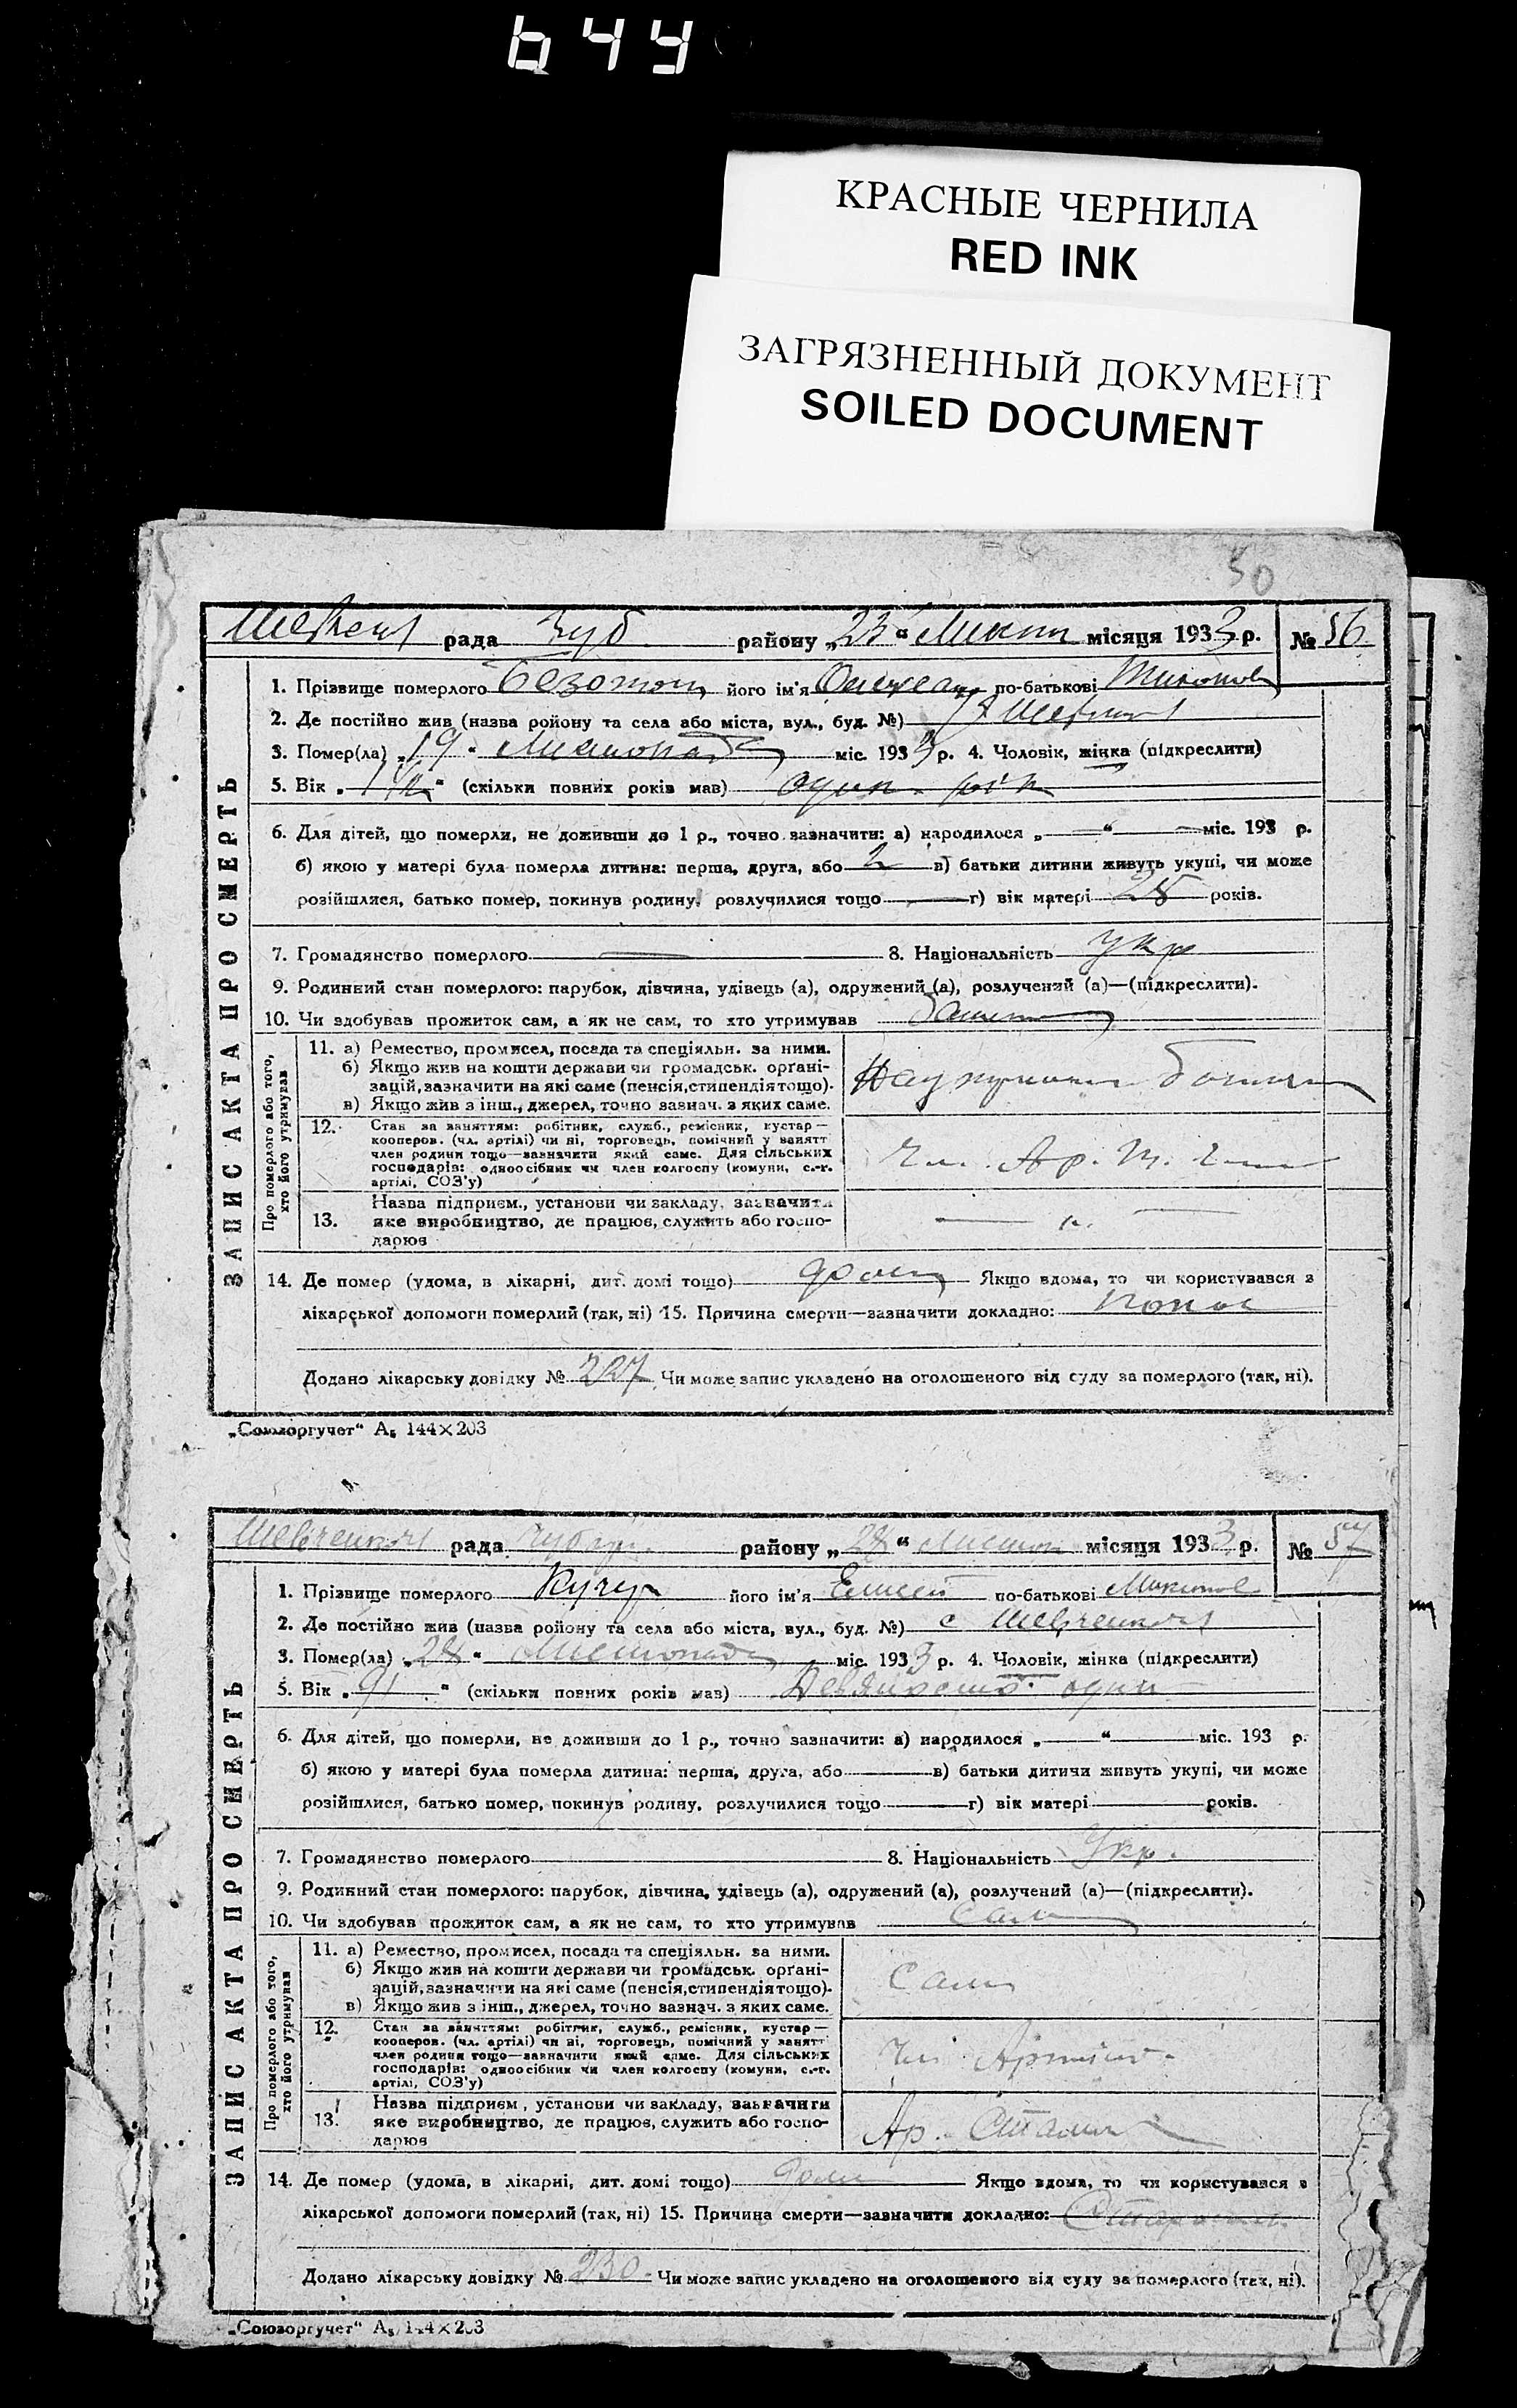 644
КРАСНЫЕ ЧЕРНИЛА
RED INK
ЗАГРЯЗНЕННЫЙ ДОКУМЕНТ
SOILED DOCUMENT
50
рада району „23“ місяця 1933 р. № 56
ЗАПИС АКТА ПРО СМЕРТЬ
1. Прізвище померлого його ім'я по-батькові
2. Де постійно жив (назва ройону та села або міста, вул., буд. №)
3. Помер(ла) „19“ Листопада міс. 1933 р. 4. Чоловік, жінка (підкреслити)
5. Вік „ “ (скільки повних років мав) один рік
6. Для дітей, що померли, не доживши до 1 р., точно зазначити: а) народилося „—“ — міс. 193 р.
б) якою у матері була померла дитина: перша, друга, або 2 в) батьки дитини живуть укупі, чи може
розійшлися, батько помер, покинув родину, розлучилися тощо — г) вік матері років.
7. Громадянство померлого — 8. Національність укр
9. Родинний стан померлого: парубок, дівчина, удівець (а), одружений (а), розлучений (а)—(підкреслити).
10. Чи здобував прожиток сам, а як не сам, то хто утримував
Про померлого або того, хто його утримував
11. а) Ремество, промисел, посада та спеціяльн. за ними.
б) Якщо жив на кошти держави чи громадськ. орґані-
зацій, зазначити на які саме (пенсія, стипендія тощо).
в) Якщо жив з інш., джерел, точно зазнач. з яких саме.
12. Стан за заняттям: робітник, служб., ремісник, кустар—
кооперов. (чл. артілі) чи ні, торговець, помічний у занятт
член родини тощо—зазначити який саме. Для сільських
господарів: одноосібник чи член колгоспу (комуни, с.-г.
артілі, СОЗ'у)
Назва підприєм., установи чи закладу, зазначити
13. яке виробництво, де працює, служить або госпо-
дарює
14. Де помер (удома, в лікарні, дит. домі тощо) Якщо вдома, то чи користувався з
лікарської допомоги померлий (так, ні) 15. Причина смерти—зазначити докладно: понос
Додано лікарську довідку № 227 Чи може запис укладено на оголошеного від суду за померлого (так, ні).
„Союзоргучет“ А₅ 144×203
Шевченков рада району „28“ місяця 1933 р. № 57
ЗАПИС АКТА ПРО СМЕРТЬ
1. Прізвище померлого Кучер його ім'я Елисей по-батькові
2. Де постійно жив (назва ройону та села або міста, вул., буд. №) с Шевченков
3. Помер(ла) „28“ Листопада міс. 1933 р. 4. Чоловік, жінка (підкреслити)
5. Вік „91“ (скільки повних років мав) Девяносто один
6. Для дітей, що померли, не доживши до 1 р., точно зазначити: а) народилося „—“ — міс. 193 р.
б) якою у матері була померла дитина: перша, друга, або — в) батьки дитини живуть укупі, чи може
розійшлися, батько помер, покинув родину, розлучилися тощо — г) вік матері — років.
7. Громадянство померлого — 8. Національність Укр.
9. Родинний стан померлого: парубок, дівчина, удівець (а), одружений (а), розлучений (а)—(підкреслити).
10. Чи здобував прожиток сам, а як не сам, то хто утримував сам
Про померлого або того, хто його утримував
11. а) Ремество, промисел, посада та спеціяльн. за ними.
б) Якщо жив на кошти держави чи громадськ. орґані-
зацій, зазначити на які саме (пенсія, стипендія тощо).
в) Якщо жив з інш., джерел, точно зазнач. з яких саме.
Сам
12. Стан за заняттям: робітник, служб., ремісник, кустар—
кооперов. (чл. артілі) чи ні, торговець, помічний у занятт
член родини тощо—зазначити який саме. Для сільських
господарів: одноосібник чи член колгоспу (комуни, с.-г.
артілі, СОЗ'у)
Назва підприєм., установи чи закладу, зазначити
13. яке виробництво, де працює, служить або госпо-
дарює
Ар.
14. Де помер (удома, в лікарні, дит. домі тощо) Якщо вдома, то чи користувався з
лікарської допомоги померлий (так, ні) 15. Причина смерти—зазначити докладно:
Додано лікарську довідку № 230. Чи може запис укладено на оголошеного від суду за померлого (так, ні).
„Союзоргучет“ А₅ 144×203